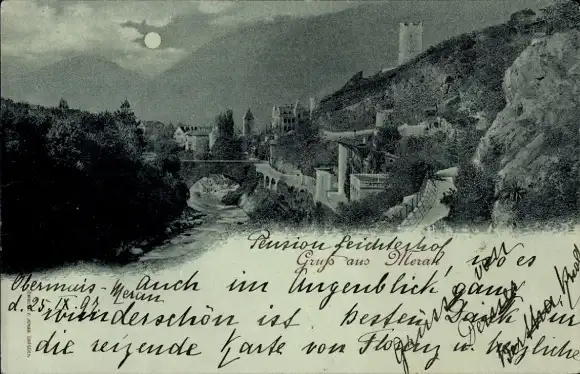 Pension Leichterhof
Gruß aus Meran, wo es
Obermais-
Meran
d. 25. IX. 97
Auch im Augenblick ganz
wunderschön ist, besten Dank für
die reizende Karte von Florenz u. herzliche
Grüsse von
Bertha